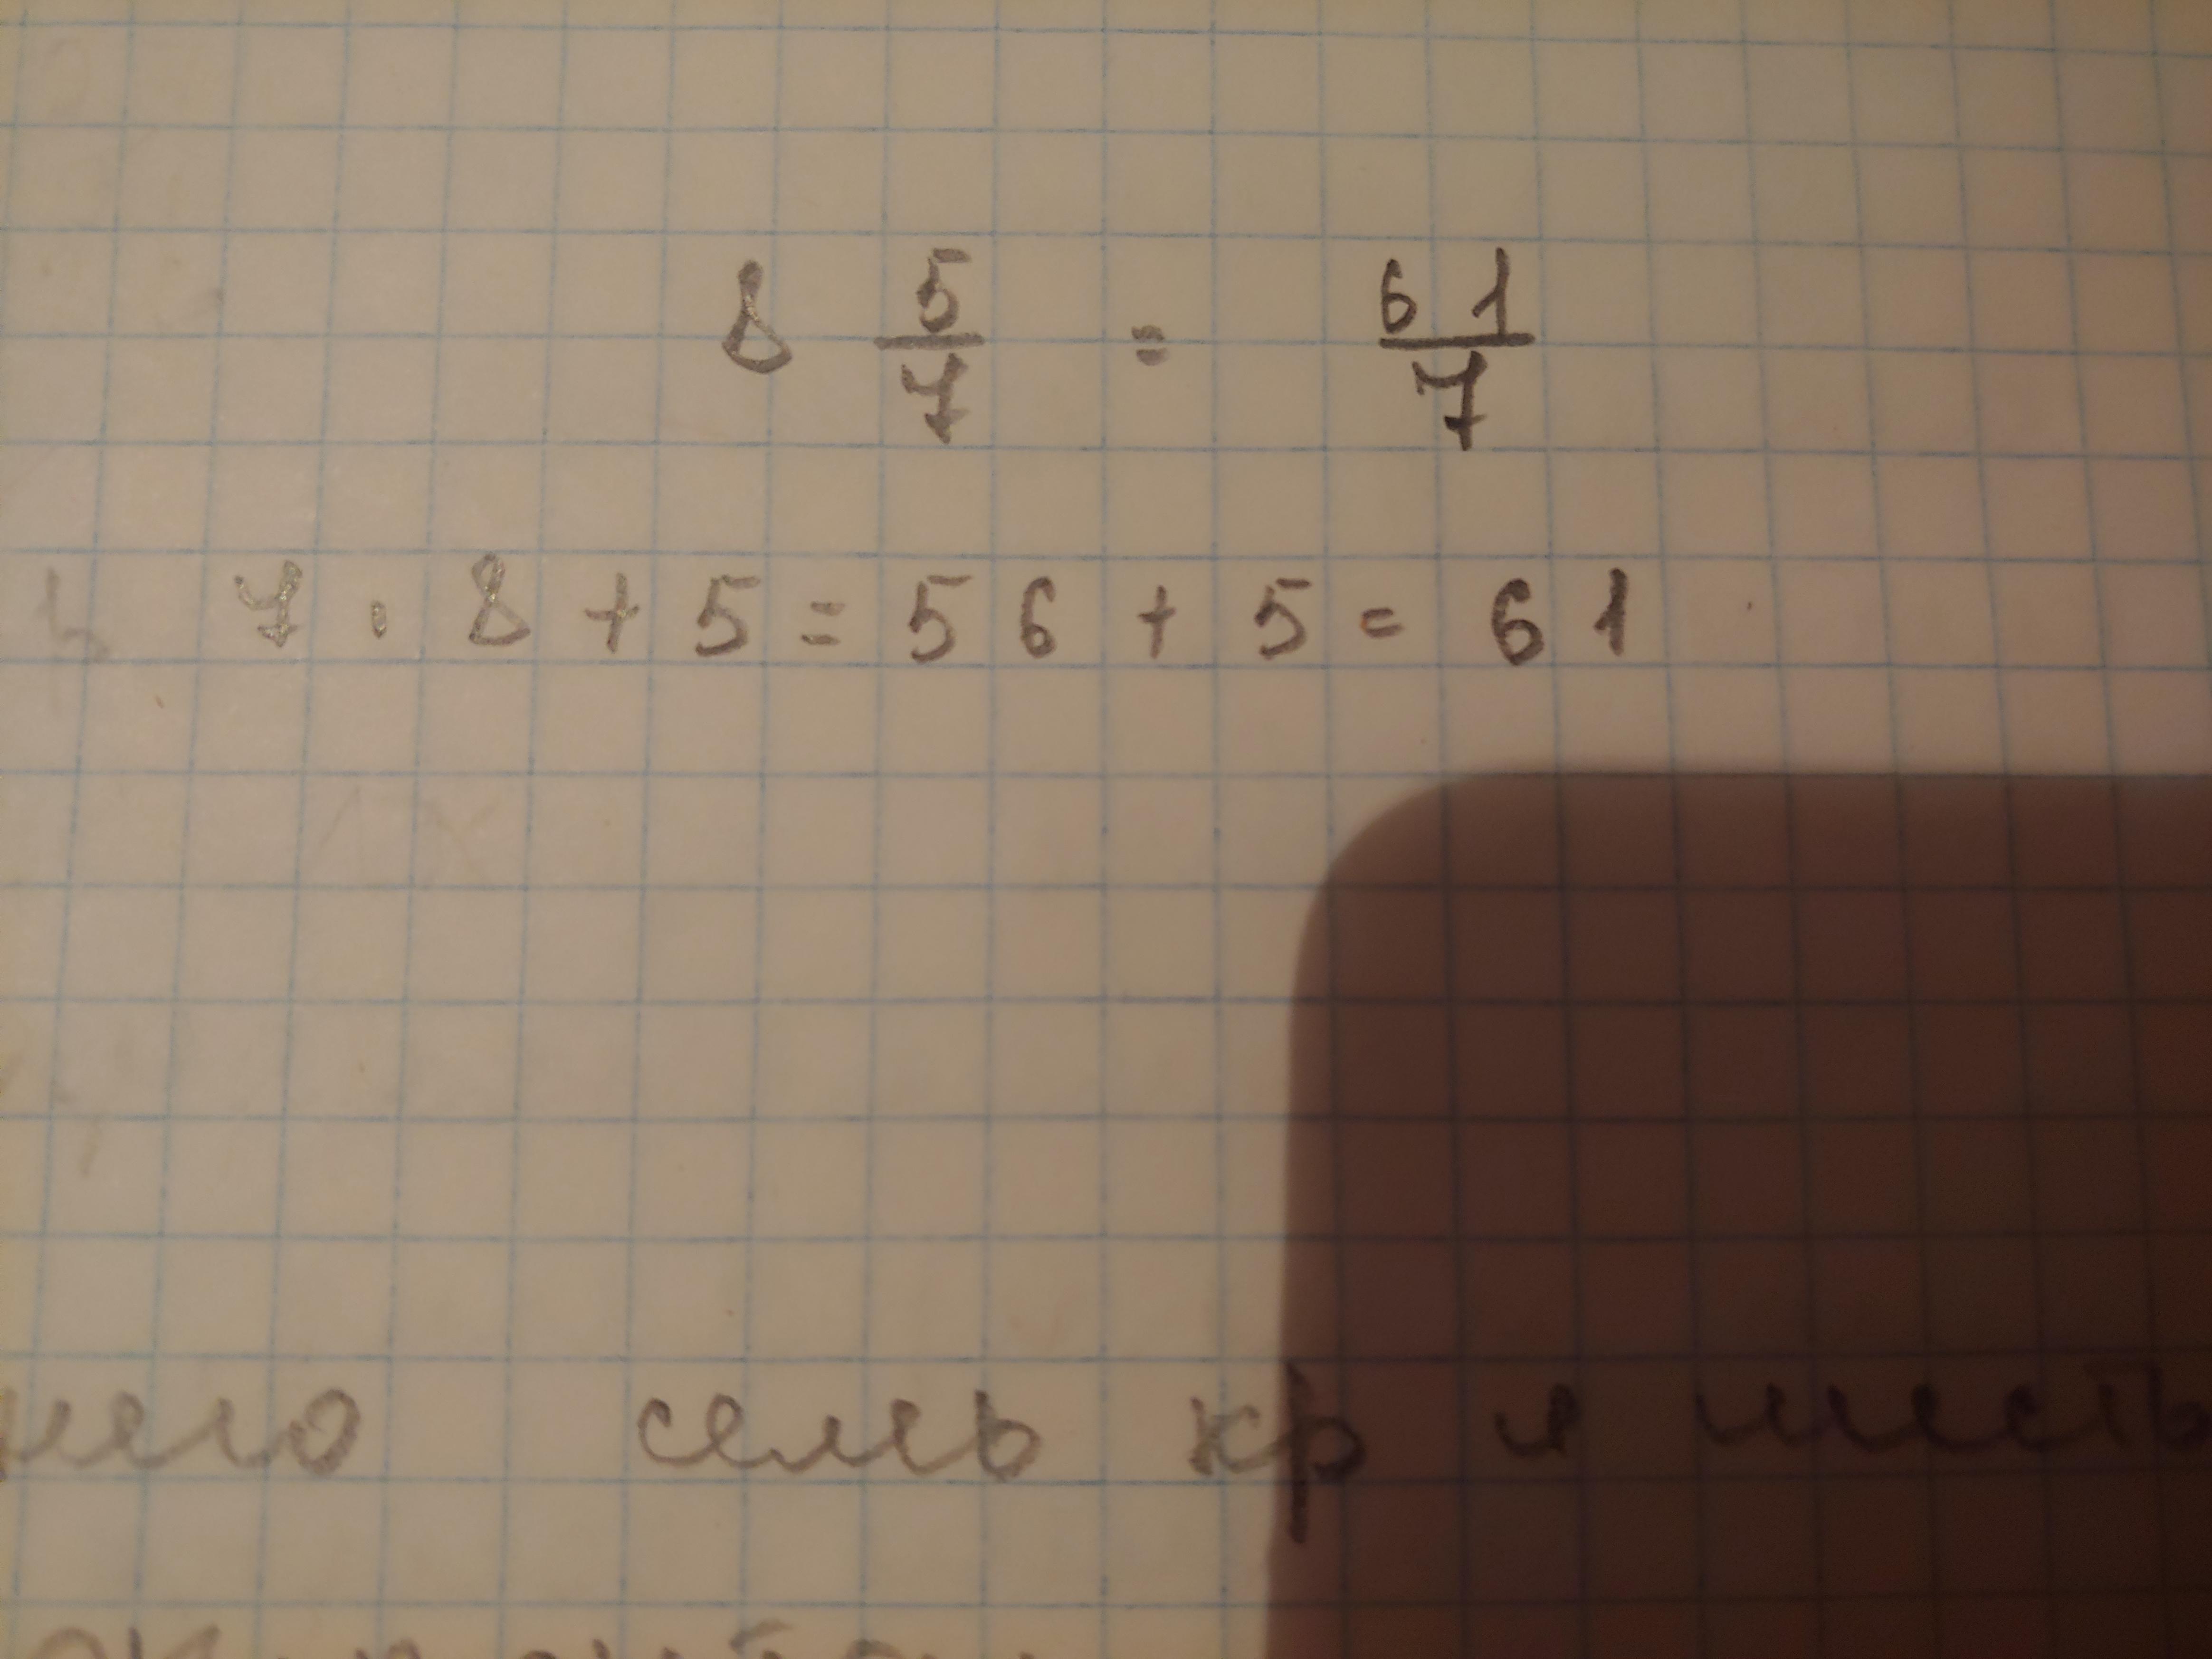 8 5/7 = 61/7
7 · 8 + 5 = 56 + 5 = 61
семь кр и шесть